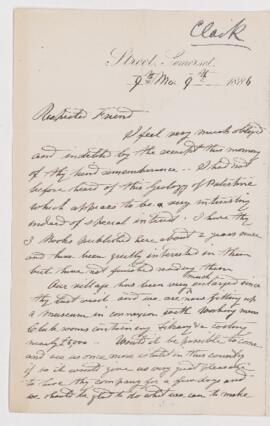 Clark
Street, Somerset,
9th Mo. 9th 1886
Respected Friend
I feel very much obliged
and indebted by the receipt this morning
of thy kind remembrance. I had not
before heard of this Geology of Palestine
which appears to be a very interesting
indeed of special interest. I have thy
3 Books published here about 2 years since
and have been greatly interested in them
but have not finished reading them
Our village has been very much enlarged since
thy last visit and we are now fitting up
a Museum in connexion with Working mens
Club rooms containing Library & costing
nearly £2500. Would it be possible to come
and see us once more when in this country
if so it would give us very great pleasure
to have thy company for a few days and
we should be glad to do what we can to make